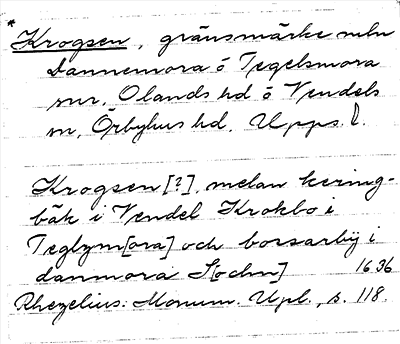 *Krogsen, gränsmärke mln
Dannemora o Tegelsmora
snr, Olands hd o Vendels
sn, Örbyhus hd. Upps. l.
Krogsen [?], melan kering-
bäk i Vendel Krokbo i
Teglzm[ora] och borsarbÿ i
danmora S[ochn] 1636
Rhezelius: Monum. Upl., s. 118.